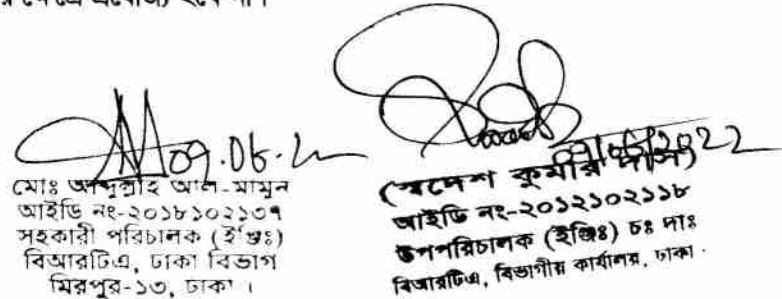 প্রযোজ্য হবে না।
০৭.০৮.২২
মোঃ আব্দুল্লাহ আল-মামুন
আইডি নং-২০১৮১০২১৩৭
সহকারী পরিচালক (ইঞ্জিঃ)
বিআরটিএ, ঢাকা বিভাগ
মিরপুর-১৩, ঢাকা ।
(স্বদেশ কুমার দাস)
আইডি নং-২০১২১০২১১৮
উপপরিচালক (ইঞ্জিঃ) চঃ দাঃ
বিআরটিএ, বিভাগীয় কার্যালয়, ঢাকা।